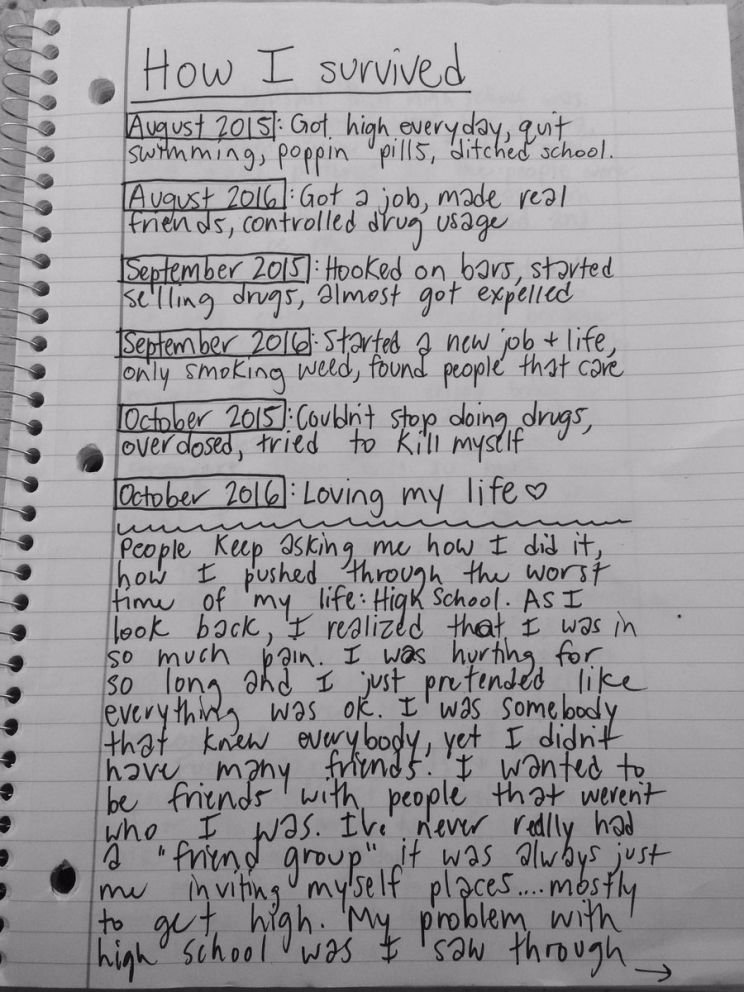 How I survived
August 2015: Got high everyday, quit
swimming, poppin pills, ditched school.
August 2016: Got a job, made real
friends, controlled drug usage
September 2015: Hooked on bars, started
selling drugs, almost got expelled
September 2016: Started a new job + life,
only smoking weed, found people that care
October 2015: Couldn't stop doing drugs,
overdosed, tried to kill myself
October 2016: Loving my life ♡
People keep asking me how I did it,
how I pushed through the worst
time of my life: High School. As I
look back, I realized that I was in
so much pain. I was hurting for
so long and I just pretended like
everything was ok. I was somebody
that knew everybody, yet I didn't
have many friends. I wanted to
be friends with people that weren't
who I was. I've never really had
a "friend group" it was always just
me inviting myself places....mostly
to get high. My problem with
high school was I saw through →